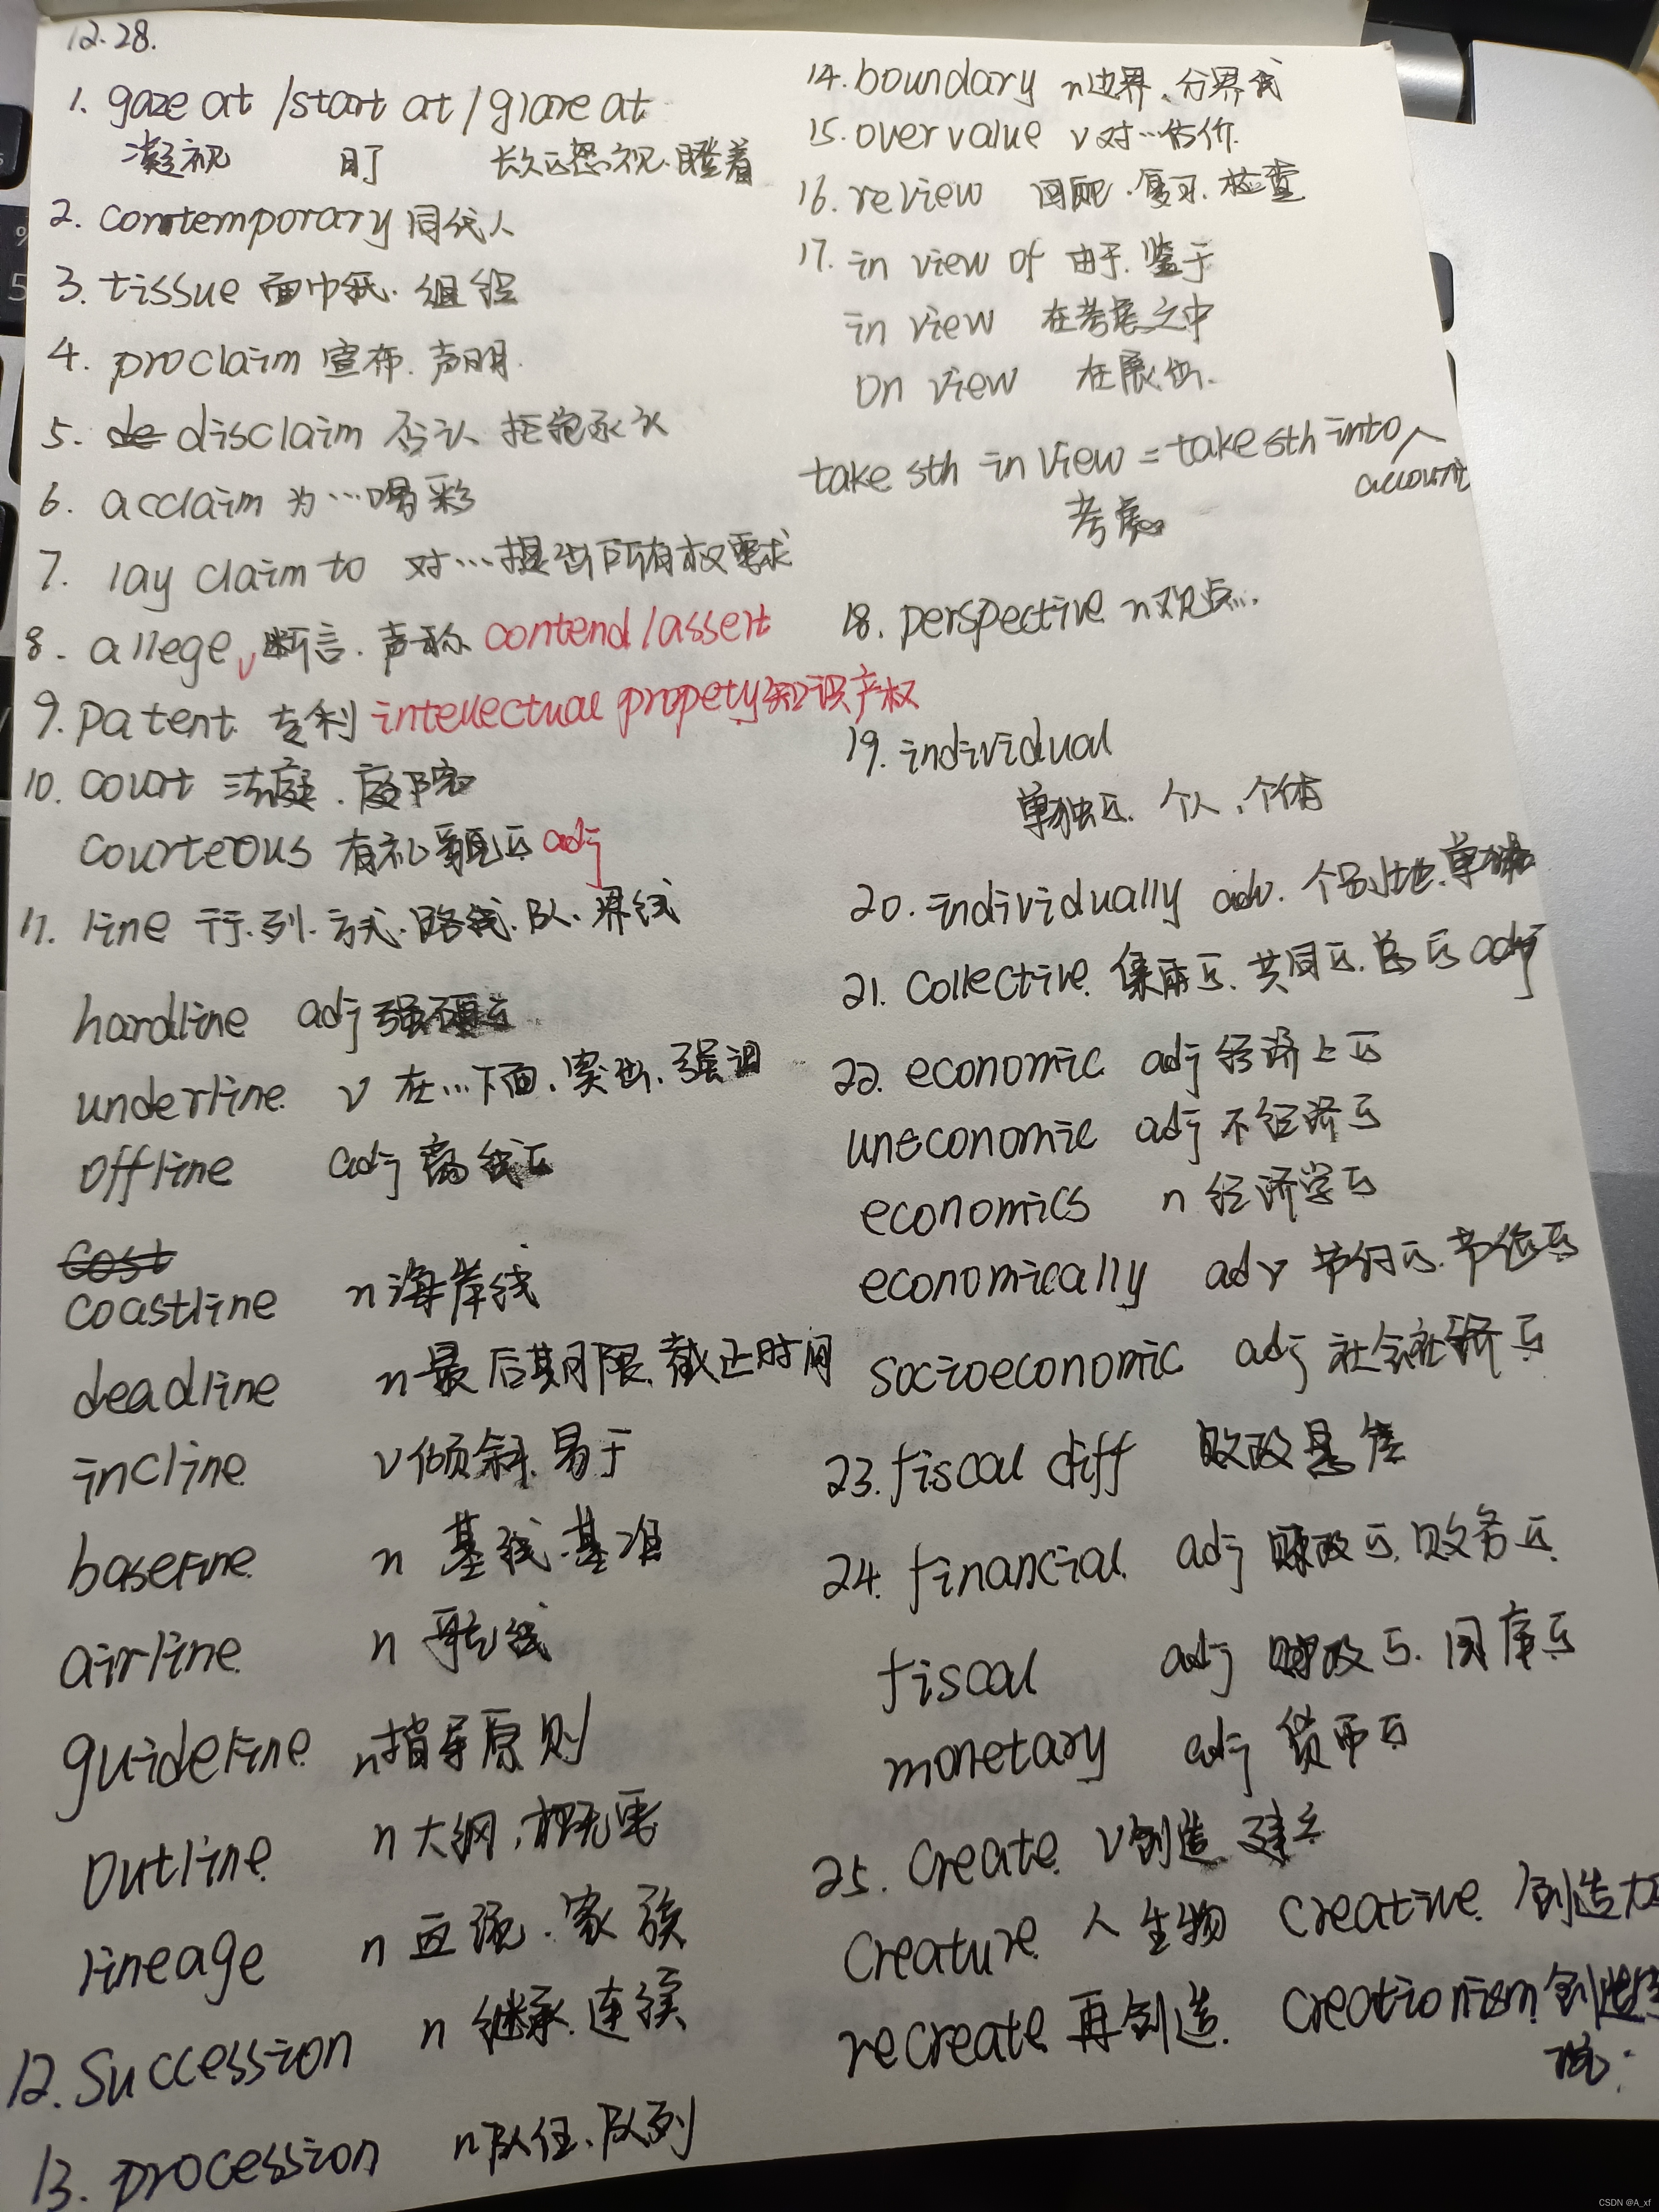 12.28.
1. gaze at /start at / glare at
凝视 盯 长久的怒视.瞪着
2. contemporary 同代人
3. tissue 面巾纸. 组织
4. proclaim 宣布. 声明.
5. de disclaim 否认 拒绝承认
6. acclaim 为…喝彩
7. lay claim to 对…提出所有权要求
8. allege v 断言. 声称 contend / assert
9. patent 专利 intellectual propety 知识产权
10. court 法庭. 庭院
courteous 有礼貌的 adj
11. line 行.列.方式.路线.队.界线
hardline adj 强硬的
underline v 在…下面.突出.强调
offline adj 离线的
cost
coastline n 海岸线
deadline n 最后期限.截止时间
incline v 倾斜.易于
baseline n 基线.基准
airline n 航线
guideline n 指导原则
outline n 大纲.概要
lineage n 血统.家族
12. succession n 继承.连续
13. procession n 队伍.队列
14. boundary n 边界.分界线
15. overvalue v 对…估价.
16. review 回顾.复习.检查
17. in view of 由于.鉴于
in view 在考虑之中
on view 在展出.
take sth in view = take sth into account
考虑
18. perspective n 观点…
19. individual
单独的. 个人. 个体
20. individually adv. 个别地.单独
21. collective 集体的.共同的.总的 adj
22. economic adj 经济上的
uneconomic adj 不经济的
economics n 经济学的
economically adv 节约的.节俭的
socioeconomic adj 社会经济的
23. fiscal cliff 财政悬崖
24. financial adj 财政的.财务的
fiscal adj 财政的.国库的
monetary adj 货币的
25. create v 创造 建立
creature 人 生物 creative 创造力的
recreate 再创造. creationism 创造
说.
CSDN @A_xf